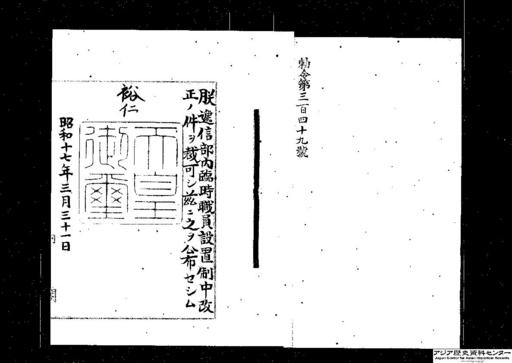 勅令第三百四十九號
朕遞信部內臨時職員設置制中改
正ノ件ヲ裁可シ茲ニ之ヲ公布セシム
裕仁
天皇
御璽
昭和十七年三月三十一日
アジア歴史資料センター
Japan Center for Asian Historical Records